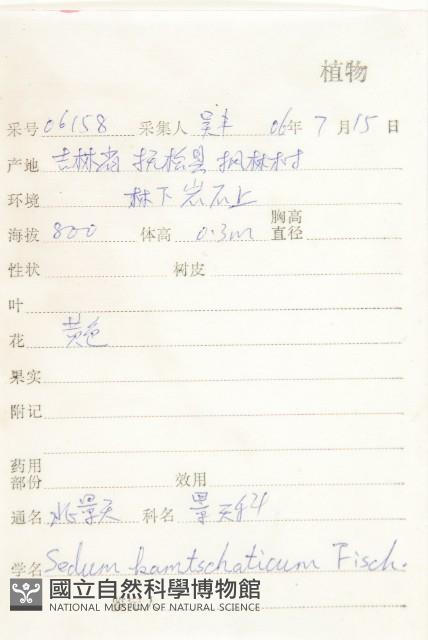 植物
采号 06158 采集人 吴丰 06年 7月15日
产地 吉林省 抚松县 枫林村
环境 林下岩石上
海拔 800 体高 0.3m 胸高直径
性状 树皮
叶
花 黄色
果实
附记
药用部份 效用
通名 景天 科名 景天科
学名 Sedum kamtschaticum Fisch.
國立自然科學博物館
NATIONAL MUSEUM OF NATURAL SCIENCE